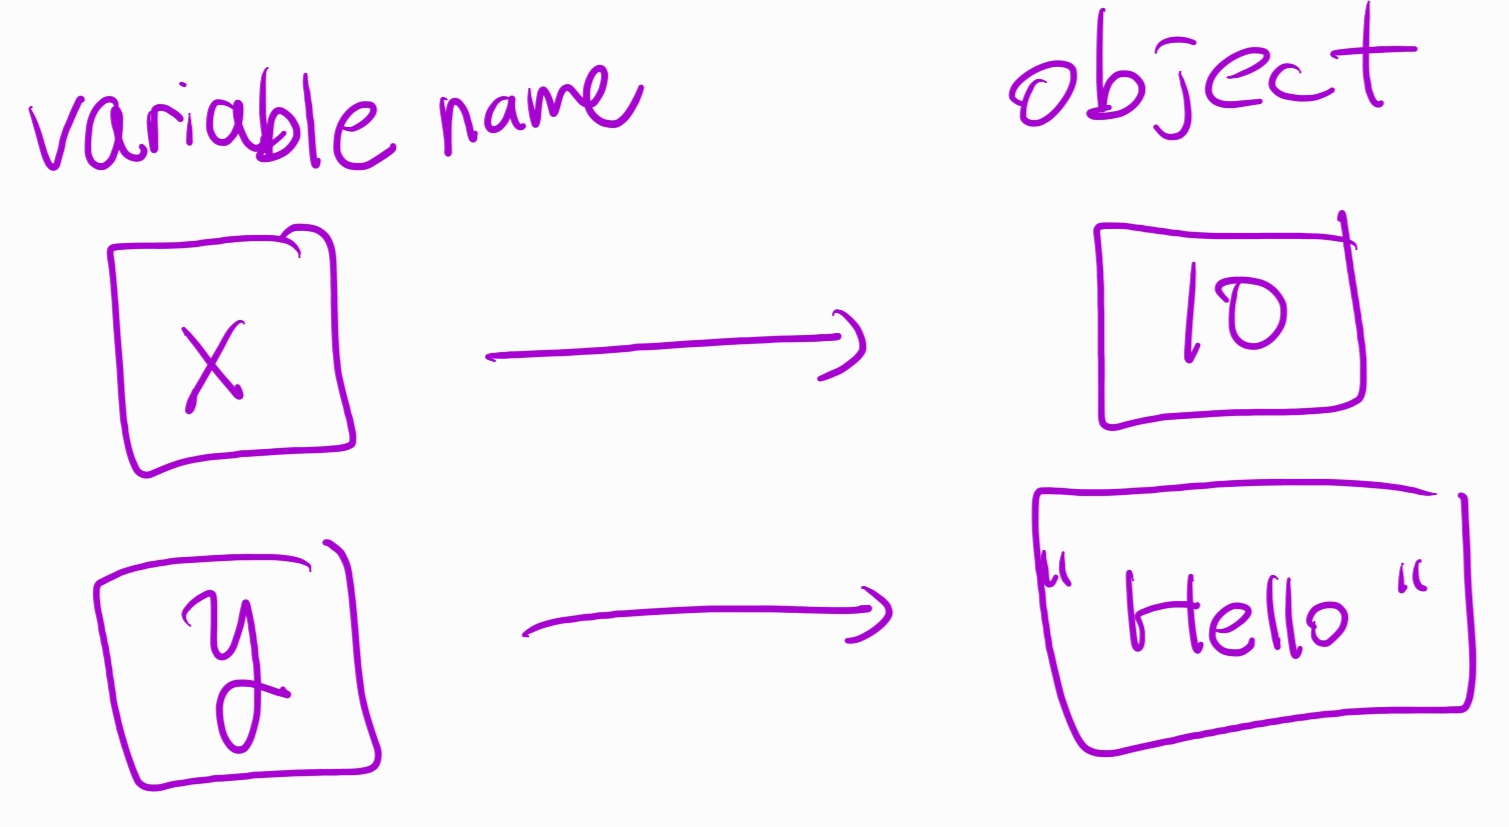 variable name object
x 10
y "Hello"